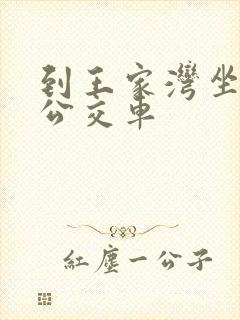 到王家灣坐
公交車
紅塵一公子